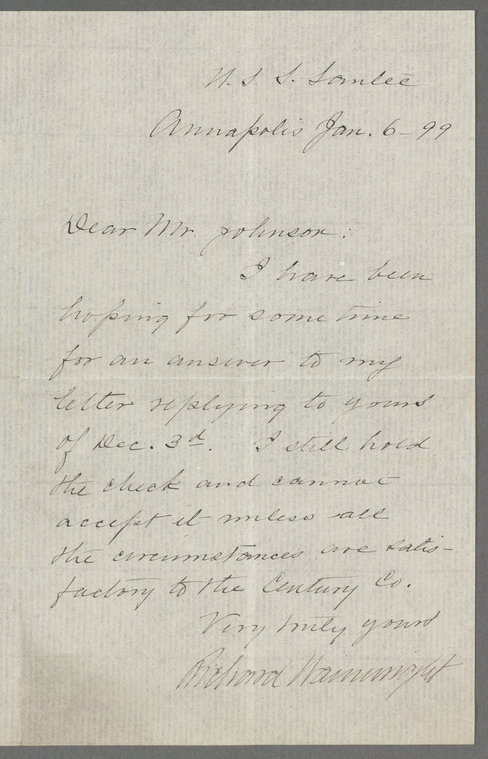 U.S.S. Santee
Annapolis Jan. 6-99
Dear Mr. Johnson:
I have been
hoping for some time
for an answer to my
letter replying to yours
of Dec. 3d. I still hold
the check and cannot
accept it unless all
the circumstances are satis-
factory to the Century Co.
Very truly yours
Richard Wainwright